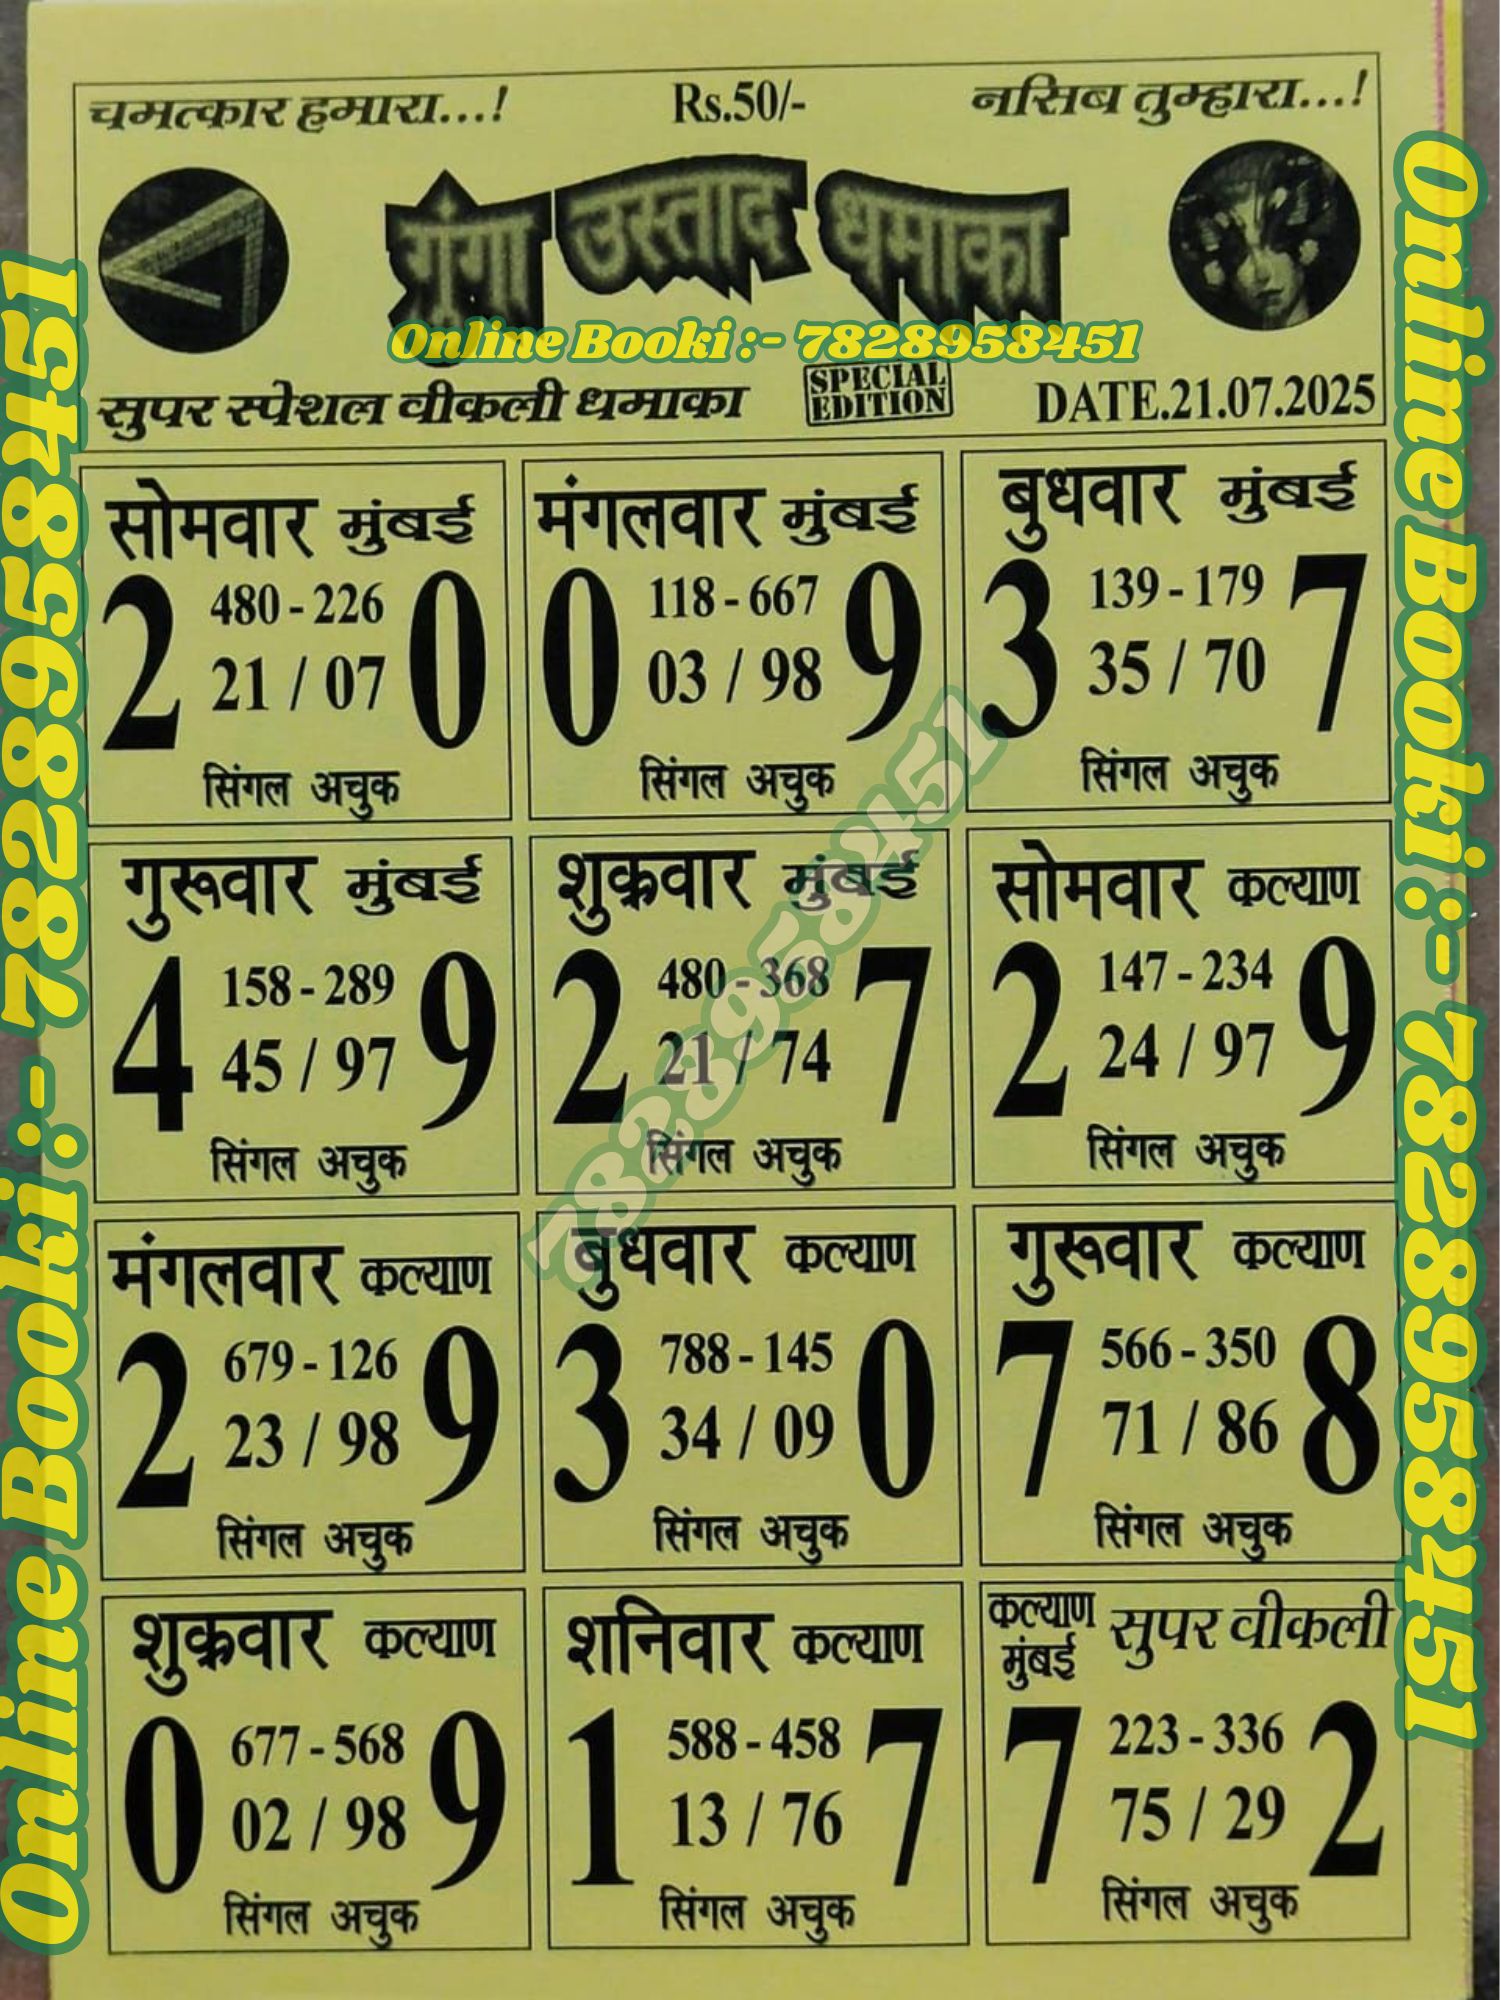 चमत्कार हमारा...!
Rs.50/-
नसिब तुम्हारा...!
गूंगा उस्ताद धमाका
Online Booki :- 7828958451
सुपर स्पेशल वीकली धमाका
SPECIAL
EDITION
DATE.21.07.2025
सोमवार मुंबई
2 480 - 226 0
21 / 07
सिंगल अचुक
मंगलवार मुंबई
0 118 - 667 9
03 / 98
सिंगल अचुक
बुधवार मुंबई
3 139 - 179 7
35 / 70
सिंगल अचुक
गुरूवार मुंबई
4 158 - 289 9
45 / 97
सिंगल अचुक
शुक्रवार मुंबई
2 480 - 368 7
21 / 74
सिंगल अचुक
सोमवार कल्याण
2 147 - 234 9
24 / 97
सिंगल अचुक
मंगलवार कल्याण
2 679 - 126 9
23 / 98
सिंगल अचुक
बुधवार कल्याण
3 788 - 145 0
34 / 09
सिंगल अचुक
गुरूवार कल्याण
7 566 - 350 8
71 / 86
सिंगल अचुक
शुक्रवार कल्याण
0 677 - 568 9
02 / 98
सिंगल अचुक
शनिवार कल्याण
1 588 - 458 7
13 / 76
सिंगल अचुक
कल्याण
मुंबई
सुपर वीकली
7 223 - 336 2
75 / 29
सिंगल अचुक
Online Booki :- 7828958451
Online Booki :- 7828958451
7828958451